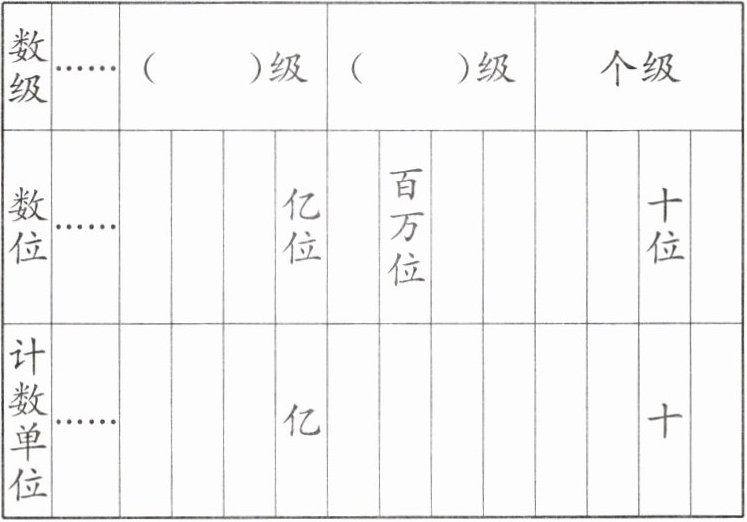 数级 …… ( )级 ( )级 个级
数位 …… 亿位 百万位 十位
计数单位 …… 亿 十